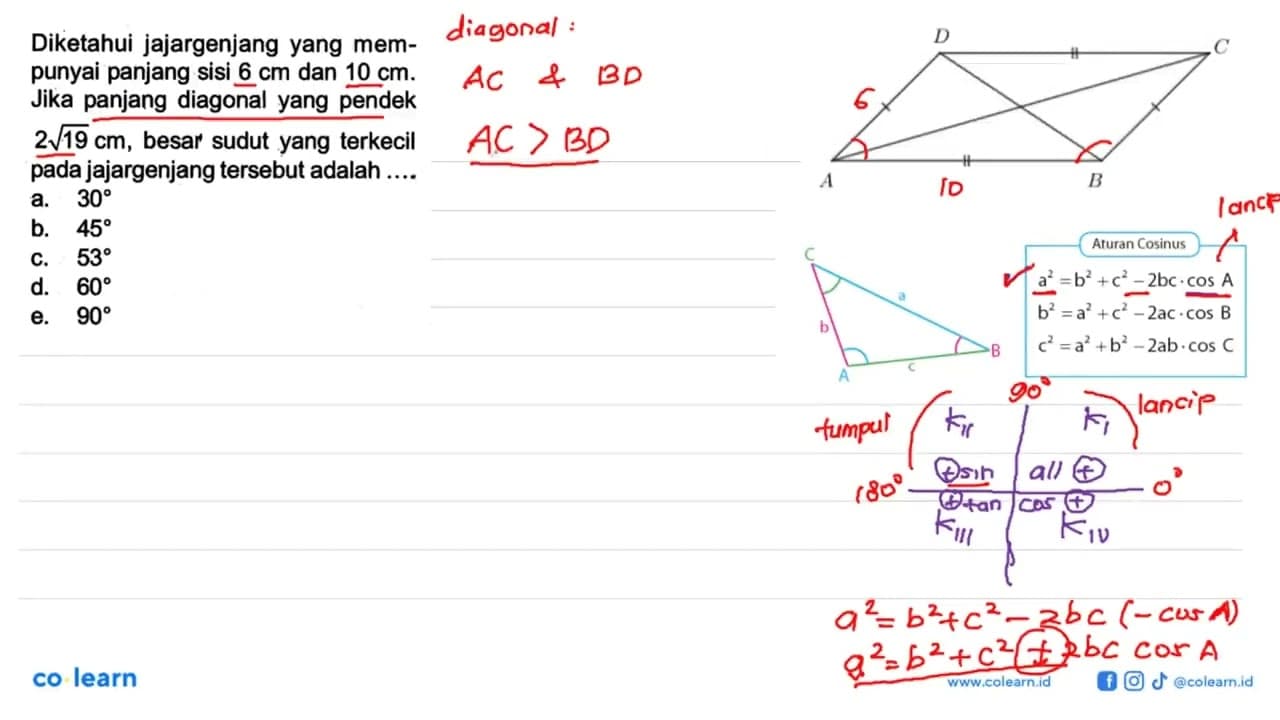 Diketahui jajargenjang yang mem-
punyai panjang sisi 6 cm dan 10 cm.
Jika panjang diagonal yang pendek
2√19 cm, besar sudut yang terkecil
pada jajargenjang tersebut adalah ....
a. 30°
b. 45°
c. 53°
d. 60°
e. 90°
diagonal :
AC & BD
AC > BD
D
C
6
A
10
B
lancip
C
a
b
B
A
c
Aturan Cosinus
a² = b² + c² − 2bc · cos A
b² = a² + c² − 2ac · cos B
c² = a² + b² − 2ab · cos C
90°
tumpul
lancip
K II
K I
+ sin
all +
180°
0°
+ tan
cos +
K III
K IV
a² = b² + c² − 2bc (− cos A)
a² = b² + c² + 2bc cos A
co learn
www.colearn.id
@colearn.id